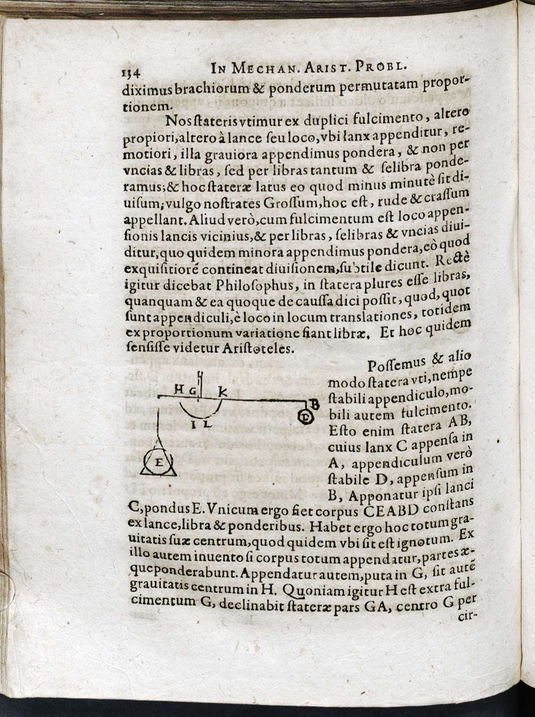 134 IN MECHAN. ARIST. PROBL.
diximus brachiorum & ponderum permutatam propor-
tionem.
Nos stateris vtimur ex duplici fulcimento, altero
propiori, altero à lance seu loco, vbi lanx appenditur, re-
motiori, illa grauiora appendimus pondera, & non per
vncias & libras, sed per libras tantum & selibra ponde-
ramus; & hoc stateræ latus eo quod minus minutè sit di-
uisum, vulgo nostrates Grossum, hoc est, rude & crassum
appellant. Aliud verò, cum fulcimentum est loco appen-
sionis lancis vicinius, & per libras, selibras & vncias diui-
ditur, quo quidem minora appendimus pondera, eò quod
exquisitiorē contineat diuisionem, subtile dicunt. Rectè
igitur dicebat Philosophus, in statera plures esse libras,
quanquam & ea quoque de caussa dici possit, quod, quot
sunt appendiculi, è loco in locum translationes, totidem
ex proportionum variatione fiant libræ. Et hoc quidem
sensisse videtur Aristoteles.
Possemus & alio
modo statera vti, nempe
stabili appendiculo, mo-
bili autem fulcimento.
Esto enim statera AB,
cuius lanx C appensa in
A, appendiculum verò
stabile D, appensum in
B, Apponatur ipsi lanci
H G K
B
I L
D
E
C, pondus E. Vnicum ergo fiet corpus CEABD constans
ex lance, libra & ponderibus. Habet ergo hoc totum gra-
uitatis suæ centrum, quod quidem vbi sit est ignotum. Ex
illo autem inuento si corpus totum appendatur, partes æ-
queponderabunt. Appendatur autem, puta in G, sit autē
grauitatis centrum in H. Quoniam igitur H est extra ful-
cimentum G, declinabit stateræ pars GA, centro G per
cir-